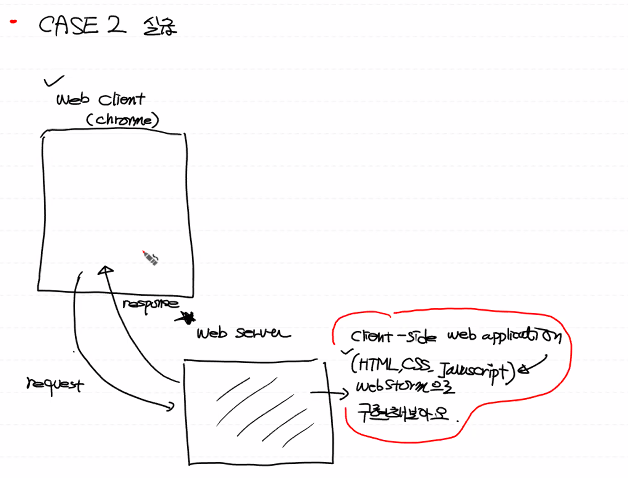 CASE 2 실습
web client
(chrome)
response
web server
request
client-side web application
(HTML, CSS, Javascript)
webstorm으로
구현해보아요.